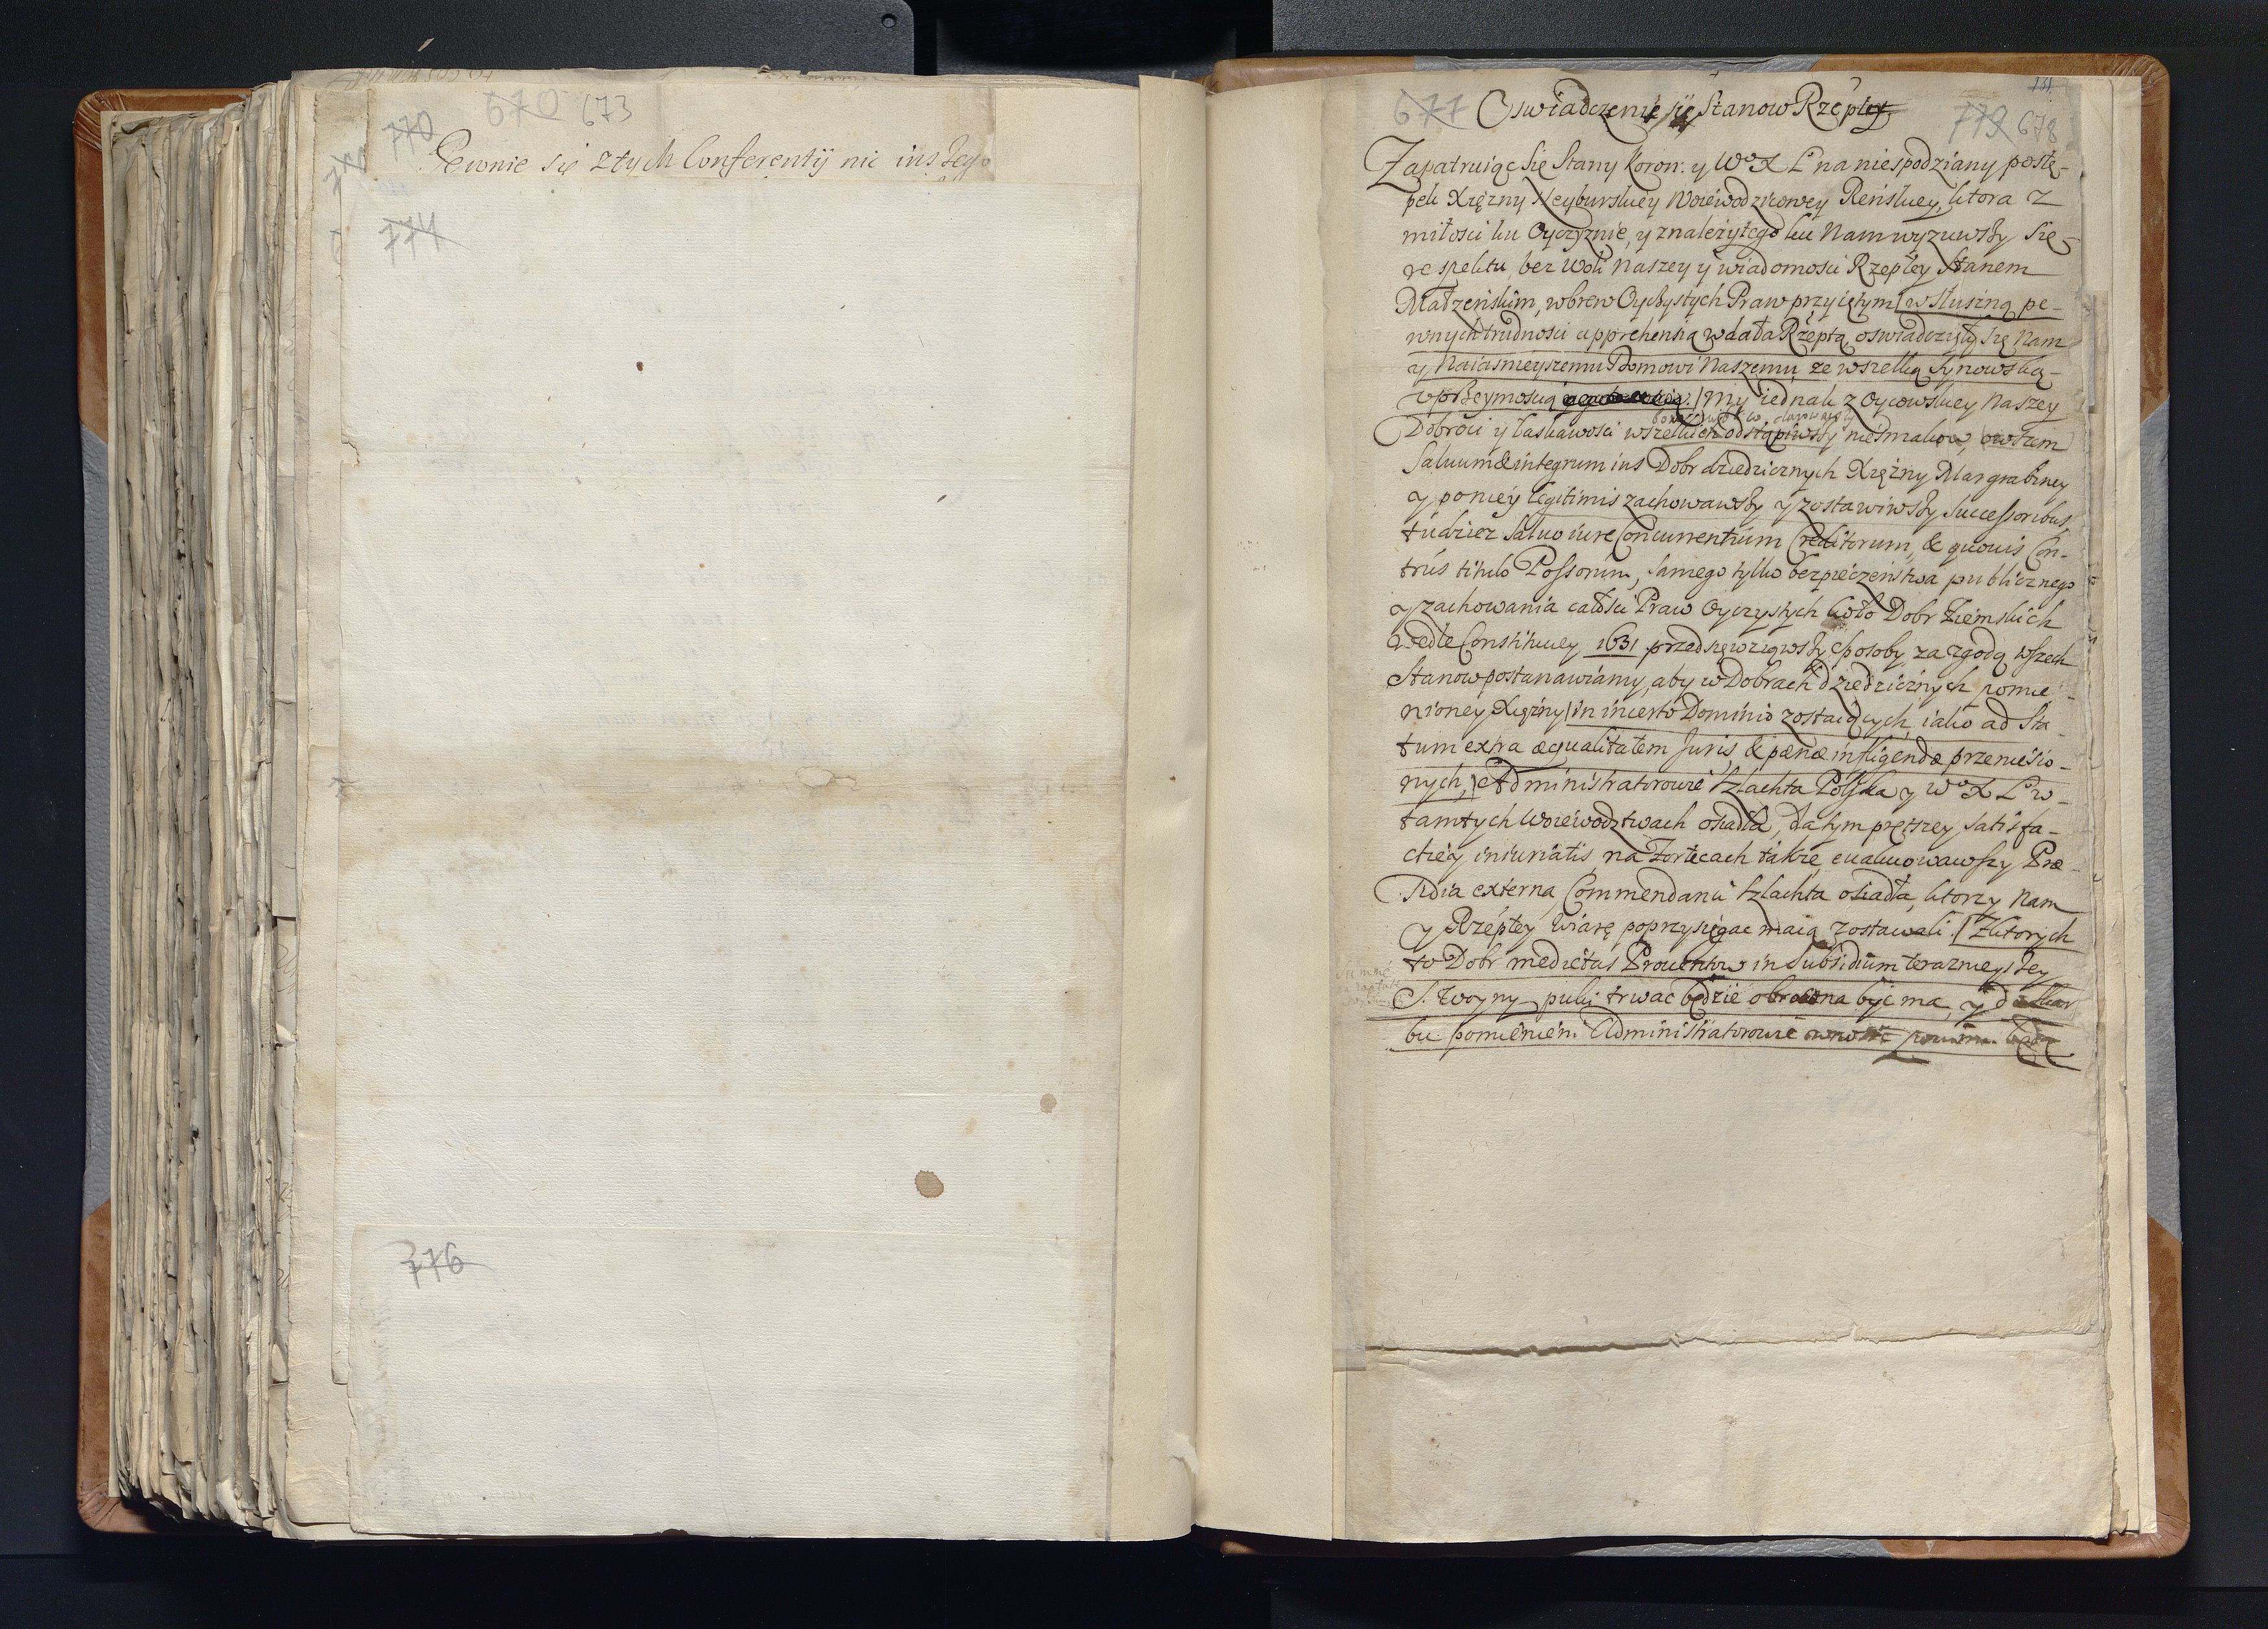 670 673
770
Pewnie się ztych Conferentÿ nic inszego
774
776
677 Oswiadczenie się Stanow Rzeptey 779 678
Zapatruiąc Się Stany Koron: y Wº X Lº na niespodziany postę-
pek Xiężny Neyburskiey Woiewodzicowey Reńskiey, ktora z
miłosci ku Oyczyznie, y znależytego ku Nam wyzuwszy Się
respektu, bez woli Naszey y wiadomosci Rzeptey Stanem
Małzeńskim, wbrew Oyczystych Praw przyiętym (w słuszną pe-
wnych trudnosci apprehensią wdała Rzeptą, oswiadczyły się Nam
y Naiasnieyszemu Domowi Naszemu, ze wszelką Synowską
vprzeymoscią My iednak z Oycowskiey Naszey
Dobroci y łaskawosci wszelkich odstąpiwszy niesmakow, owszem
Saluum & integrum ius Dobr dziedzicznych Xiężny Margrabiney
y poniey legitimis zachowawszy y zostawiwszy Successoribus,
tudziez Saluo iure Concurrentium Creditorum, & quouis Con-
trus titulo Possorum, Samego tylko bezpieczeństwa publicznego
y zachowania całosci Praw Oyczystych koło Dobr Ziemskich
wedle Constitucey 1631 przedsięwziąwszy sposoby za zgodą wszech
Stanow postanawiamy, aby w Dobrach dziedzicznych pomie-
nioney Xiężny (in incerto Dominio zostaiących, iako ad Sta-
tum extra æqualitatem Juris, & pænæ infligendæ przeniesio-
nych,) Administratorowie Szlachta Polska y Wº X Lº w
tamtych Woiewodztwach osiadła, dla tym prętszey satisfa-
ctiey iniuriatis na Fortecach także eualuowawszy Præ-
sidia externa, Commendanci Szlachta osiadła, ktorzy Nam
y Rzeptey Wiarę poprzysięgac maią zostawali. (Zktorych
to Dobr medietas Prouentow in Subsidium teraznieyszey
S. Woyny, puki trwac będzie obrocona byc ma, y do Skar
bu pomienieni Administratorowie powinni będą